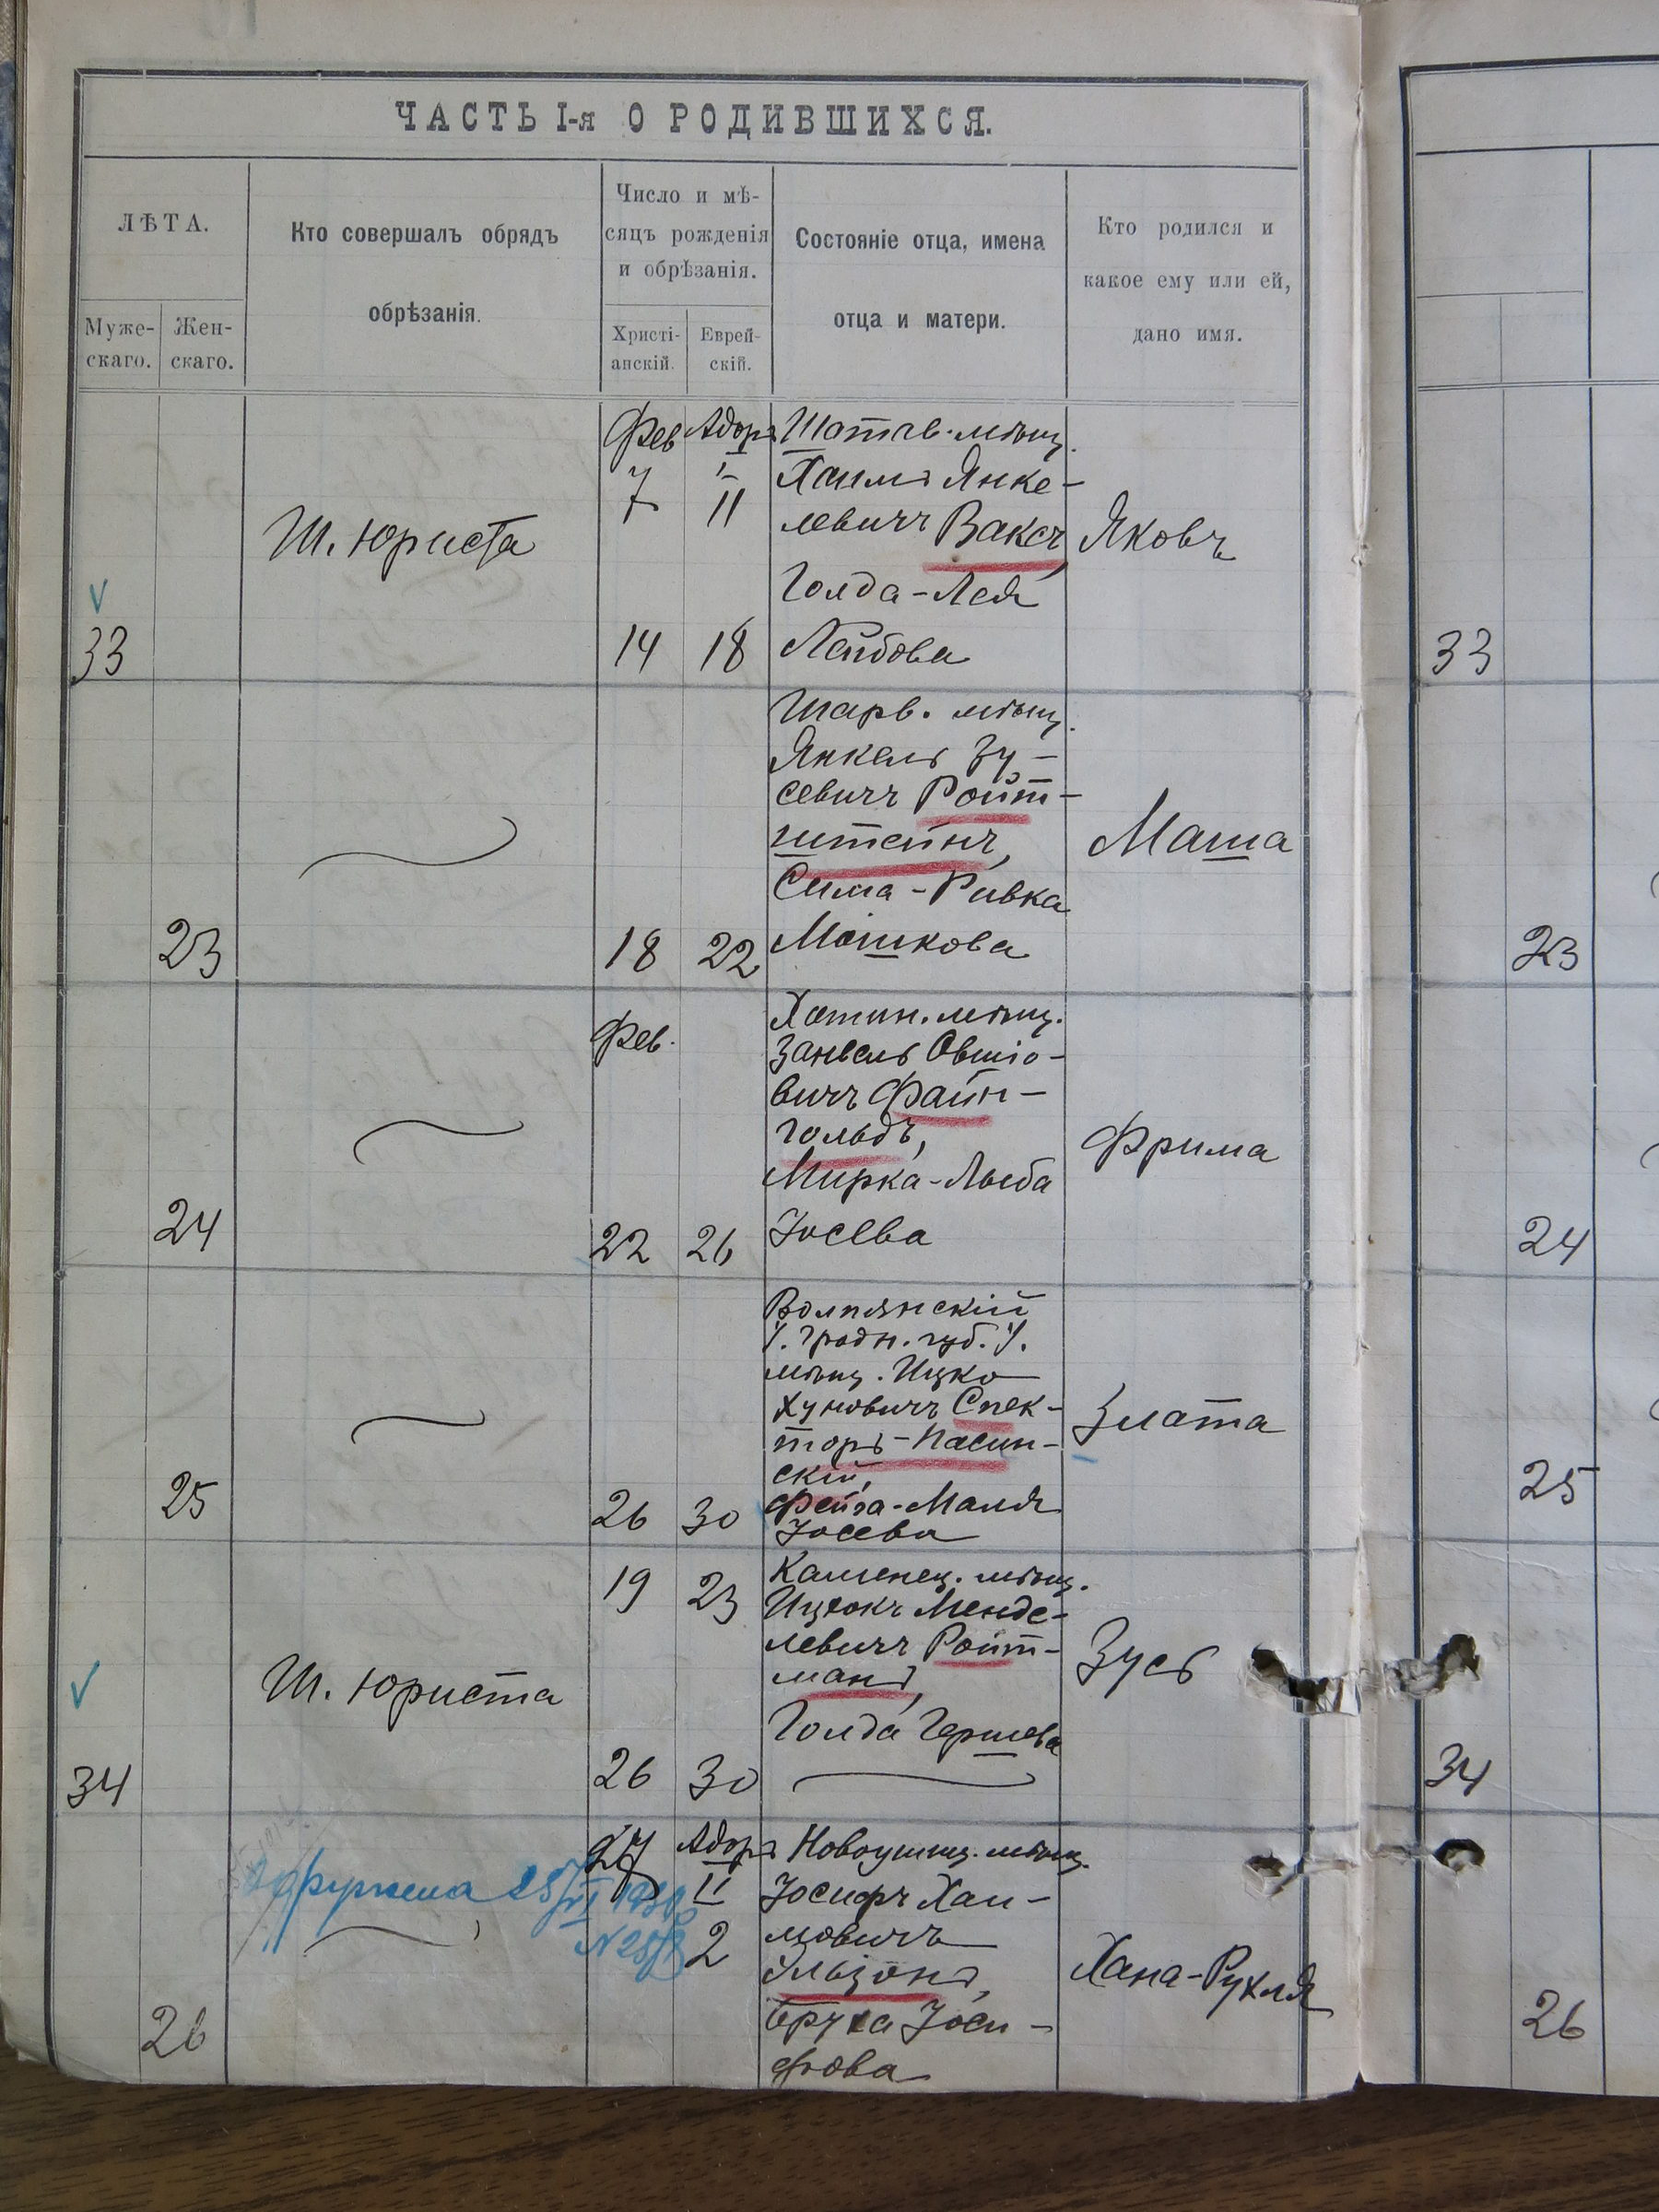 ЧАСТЬ I-я О РОДИВШИХСЯ.
ЛѢТА.
Муже-
скаго.
Жен-
скаго.
Кто совершалъ обрядъ
обрѣзанія.
Число и мѣ-
сяцъ рожденія
и обрѣзанія.
Христі-
анскій.
Еврей-
скій.
Состояніе отца, имена
отца и матери.
Кто родился и
какое ему или ей,
дано имя.
33
Ш. Юриста
Фев
7
14
Адоръ
I
11
18
мѣщ.
Хаимъ Янке-
левичъ Ваксъ,
Голда-Лея
Лейбова
Яковъ
33
23
18
22
Шарв. мѣщ.
Янкель Зу-
севичъ Ройт-
штейнъ,
Сима-Ривка
Мошкова
Маша
23
24
Фев.
22
26
Хотин. мѣщ.
Занвель Овшіо-
вичъ Файн-
гольдъ,
Мирка-Лыба
Іосева
Фрима
24
25
26
30
Волпянскій
/. Гродн. губ. /.
мѣщ. Ицко
Хуновичъ Спек-
торъ-Пасин-
скій,
Фейга-Маля
Іосева
Злата
25
34
Ш. Юриста
19
26
23
30
Каменец. мѣщ.
Ицхокъ Менде-
левичъ Ройт-
манъ,
Голда Гершева
Зусь
34
26
27
Адоръ
II
2
Новоушиц. мѣщ.
Іосифъ Хаи-
мовичъ
Ульзонъ,
Бруха Іоси-
фова
Хана-Рухля
26